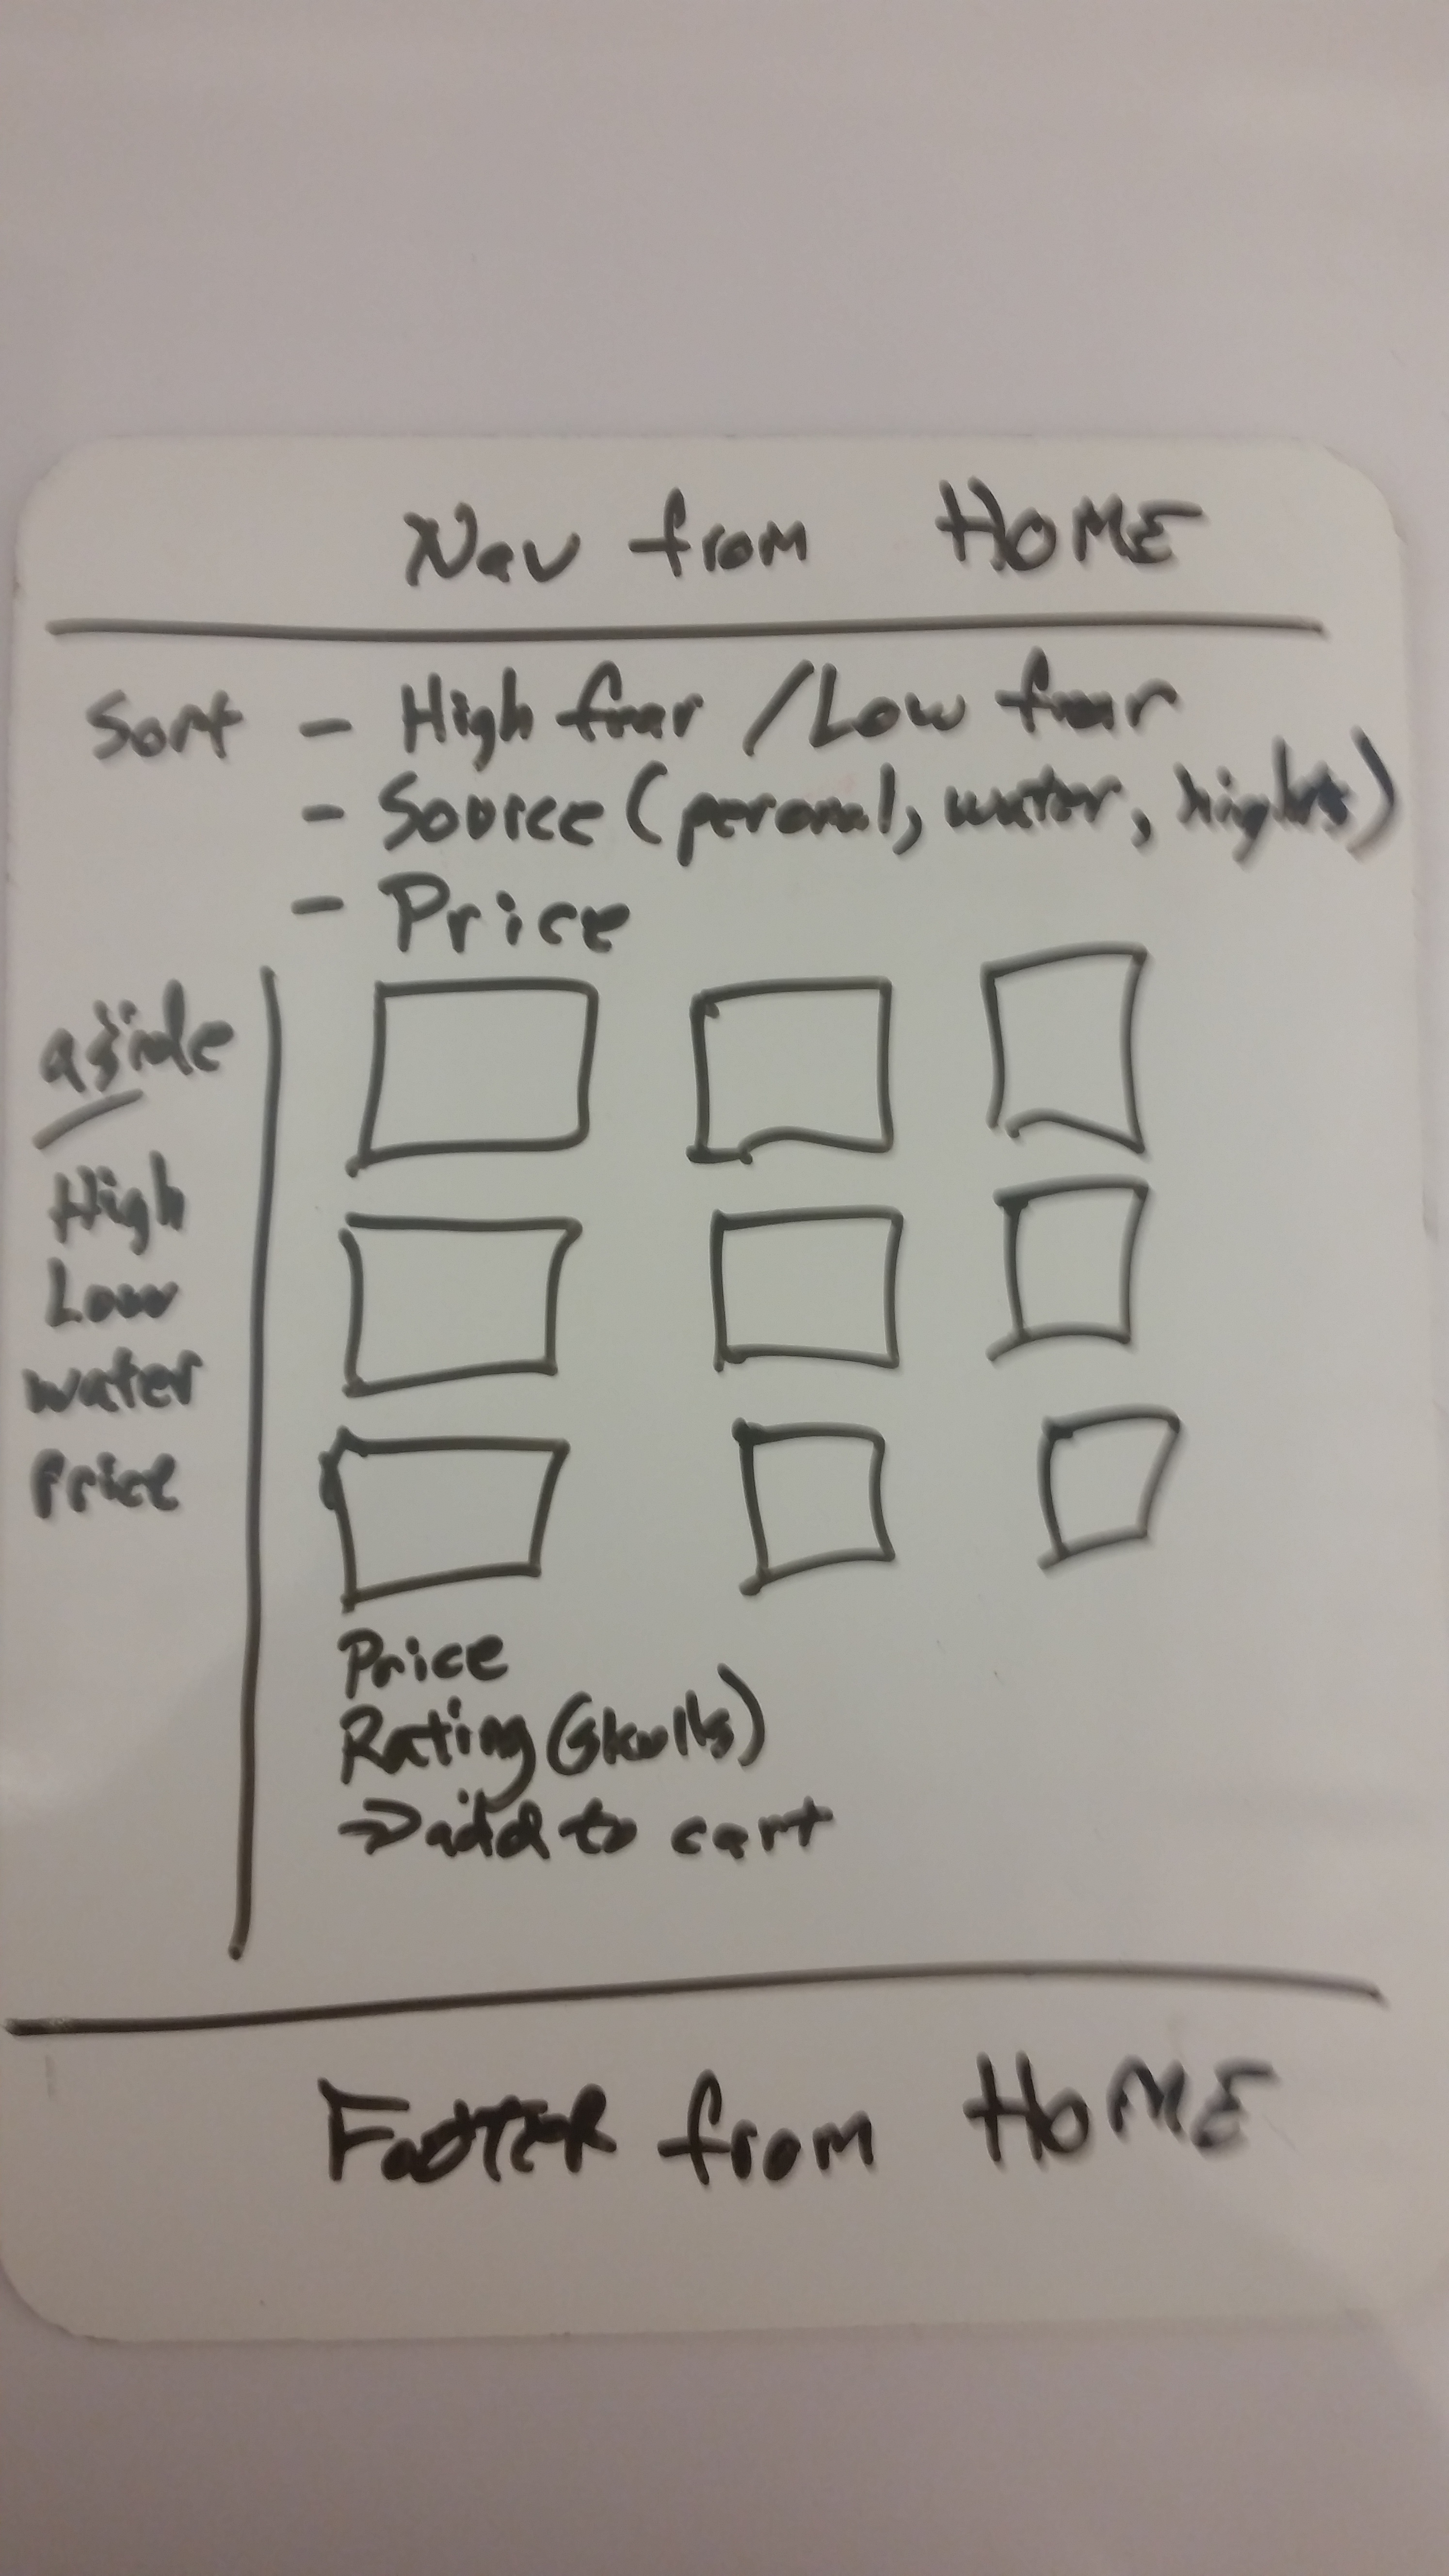 Nav from HOME
Sort - High fear / Low fear
- Source (peronal, water, hights)
- Price
aside
High
Low
water
Price
Price
Rating (skulls)
→ add to cart
FOOTER from HOME